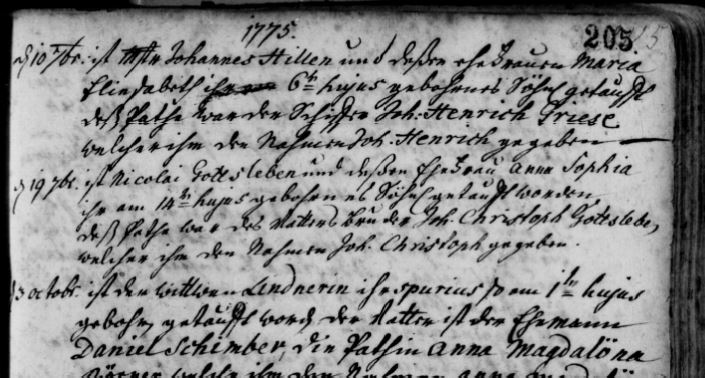 1775.
205
d 10 7br. ist Mstr Johannes Hillen und deßen ehefrauen Maria
Eliesabeth 6ten hujus gebohrnes Söhnl getaufft
deß Pathe war der Schiffer Joh. Henrich Griese
welcher ihm den Nahmen Joh. Henrich gegeben
d 19 7br. ist Nicolai Gottsleben und deßen Ehefrau Anna Sophia
ihr am 14ten hujus gebohrnes Söhnl getaufft worden,
deß Pathe war des Vatters bruder Joh. Christoph Gottslebe,
welcher ihm den Nahmen Joh. Christoph gegeben.
3 octobr. ist der wittwen Lindnerin ihr spurius so am 1ten hujus
gebohr, getaufft word, der Vatter ist der Ehemann
Daniel Schimber, die Pathin Anna Magdalöna
welche ihm den Nahmen anna